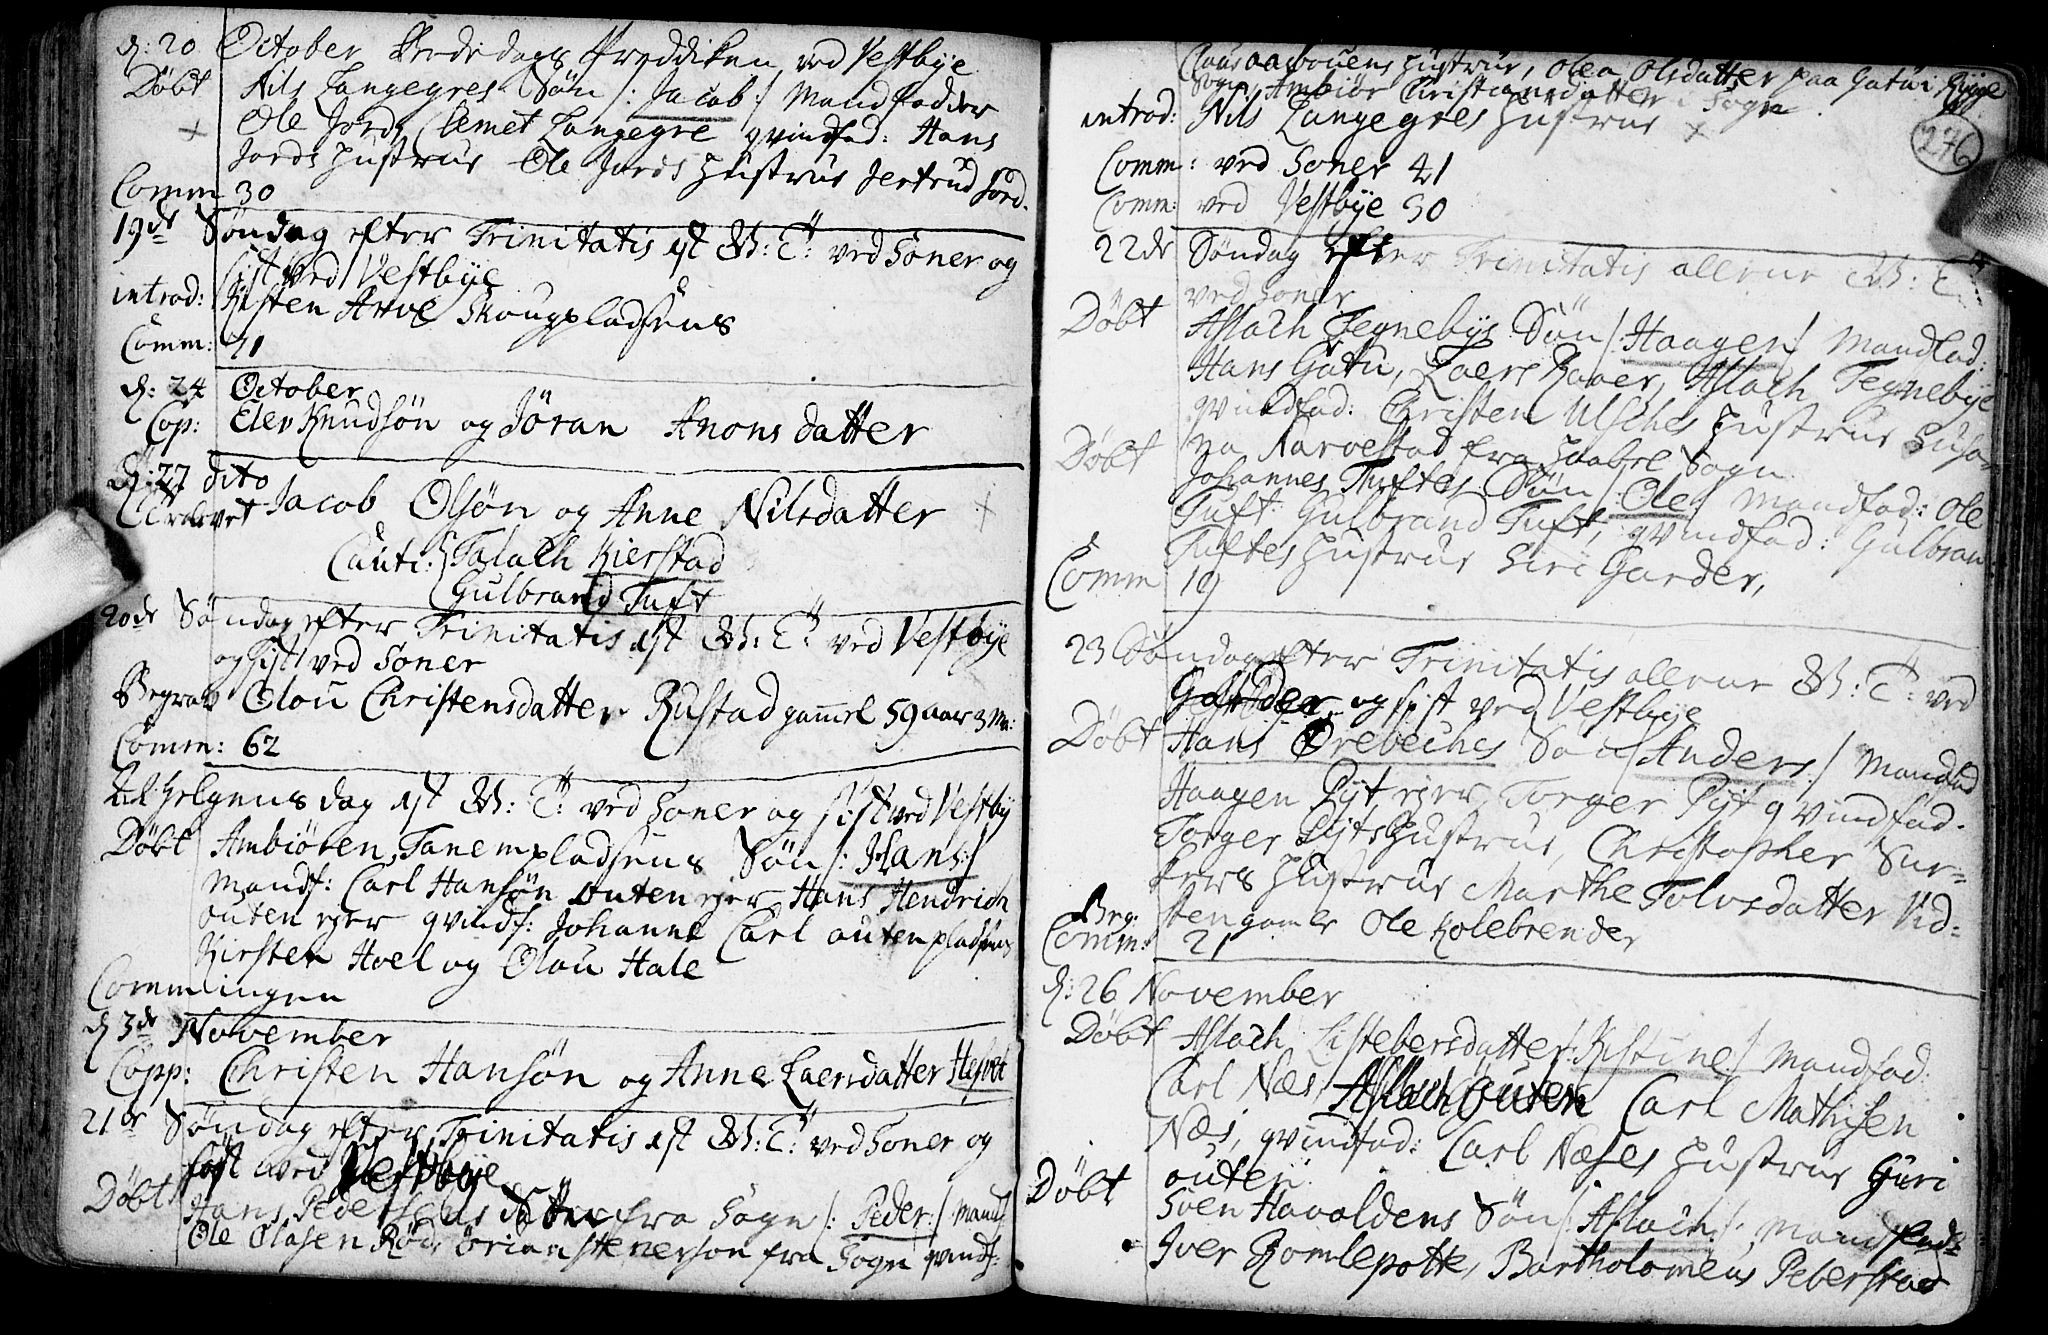 d: 20 October Bededags Preddiken ved Vestbye
Døbt Nils Langegres Søn /: Jacob :/ Mandfadder
Ole Jord, Clemet Langegre qvindfad: Hans
Jords Hustrue Ole Jords Hustrue Jertrud Jord.
Comm 30
19de Søndag efter Trinitatis ved Soner og
sist ved Vestbye
introd: Kisten Arvol Skougpladsens
Comm: 71
d: 24 October
Cop: Elev Knudsøn og Jøran Anons datter
d: 27 dito
Trolovet Jacob Olsøn og Anne Nilsdatter
Cauti: Talach Kierstad
Gulbrand Tuft
20de Søndag efter Trinitatis ved Vestbye
og sist ved Soner
Begrav Olou Christensdatter Rustad gammel 59 aar 3 M:
Comm: 62
All: Helgens dag ved Soner og sist ved Vestby
Døbt Ambiøren Tanempladsens Søn /: Hans :/
Mandf: Carl Hansøn outen ejer Hans Hendrich
outen ejer qvindf: Johanne Carl outenpladsens
Kirsten Hoel og Olou Hale
Comm ingen
d 3de November
Copp: Christen Hansøn og Anne Laersdatter
21de Søndag efter Trinitatis ved Soner og
sist ved Vestbye
Døbt Hans Pedersens Søn fra Sogn /: Peder :/ Mandf
Ole Olasen Rød, fra Sogn qvindf:
Hustrue, Olea Olsdatter paa Gatu i Rygge
Sogn, Ambiør Christiansdatter i Sogn
276
introd: Nils Langegres Hustrue
Comm: ved Soner 41
Comm: ved Vestbye 30
22de Søndag efter Trinitatis allene
ved Soner
Døbt Aslach Tegnebys Søn /: Haagen :/ Mandfad:
Hans Gatu, Laers Raaer, Aslach Tegnebye
qvindfad: Christen Ulsches Hustrue Susan
na Karvestad fra Haabøl Sogn
Døbt Johannes Tuftes Søn /: Ole :/ Mandfad: Ole
Tuft Gulbrand Tuft, qvindfad: Gulbran
Tuftes Hustrue Siri Garder,
Comm 19
23 Søndag efter Trinitatis allene ved
Garder og sist ved Vestbye
Døbt Hans Ørebeches Søn /: Anders :/ Mandfad
Haagen Pyt ejer Torger Pyt qvindfad.
Torger Pyts Hustrue, Christopher Sur=
Hustrue Marthe Tolvsdatter Vid=
sten gamle
Beg: Ole Kolebrender
Comm: 21
d: 26 November
Døbt Aslach Listebersdatter /: Kistine :/ Mandfad.
Carl Næs, Aslach outen Carl Mathisen
Næs, qvindfad: Carl Næses Hustrue Guri
outen
Døbt Soen Havoldens Søn /: Aslach :/ Mandfad:
Iver Romlepotte, Bartholomeus Peberstad